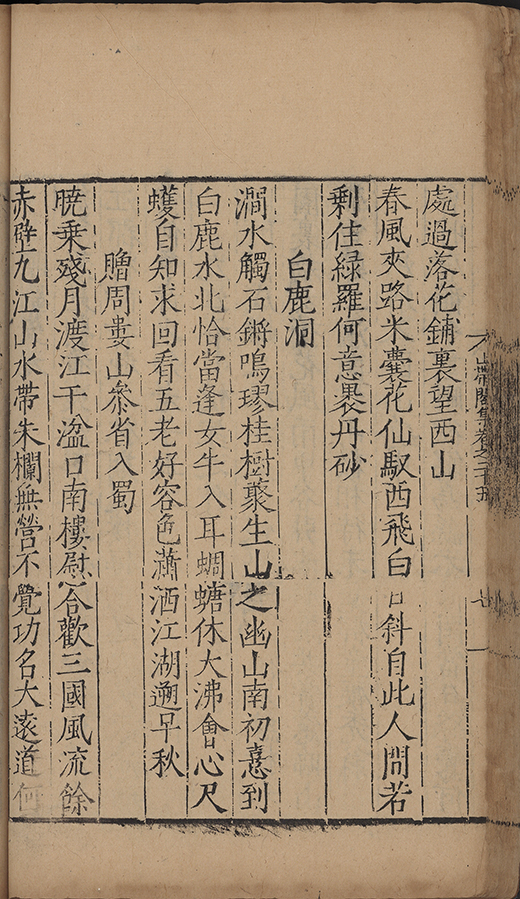 處過落花鋪裏望西山
春風夾路米囊花仙馭西飛白日斜自此人間若
剩住綠羅何意褁丹砂
白鹿洞
澗水觸石鏘鳴璆桂樹叢生山之幽山南初憙到
白鹿水北恰當逢女牛入耳蜩螗休大沸會心尺
蠖自知求回看五老好容色瀟洒江湖遡早秋
贈周婁山叅省入蜀
曉乗殘月渡江干湓口南樓慰合歡三國風流餘
赤壁九江山水帶朱欄無營不覺功名大遠道何
山帶閣集卷之二十五
七